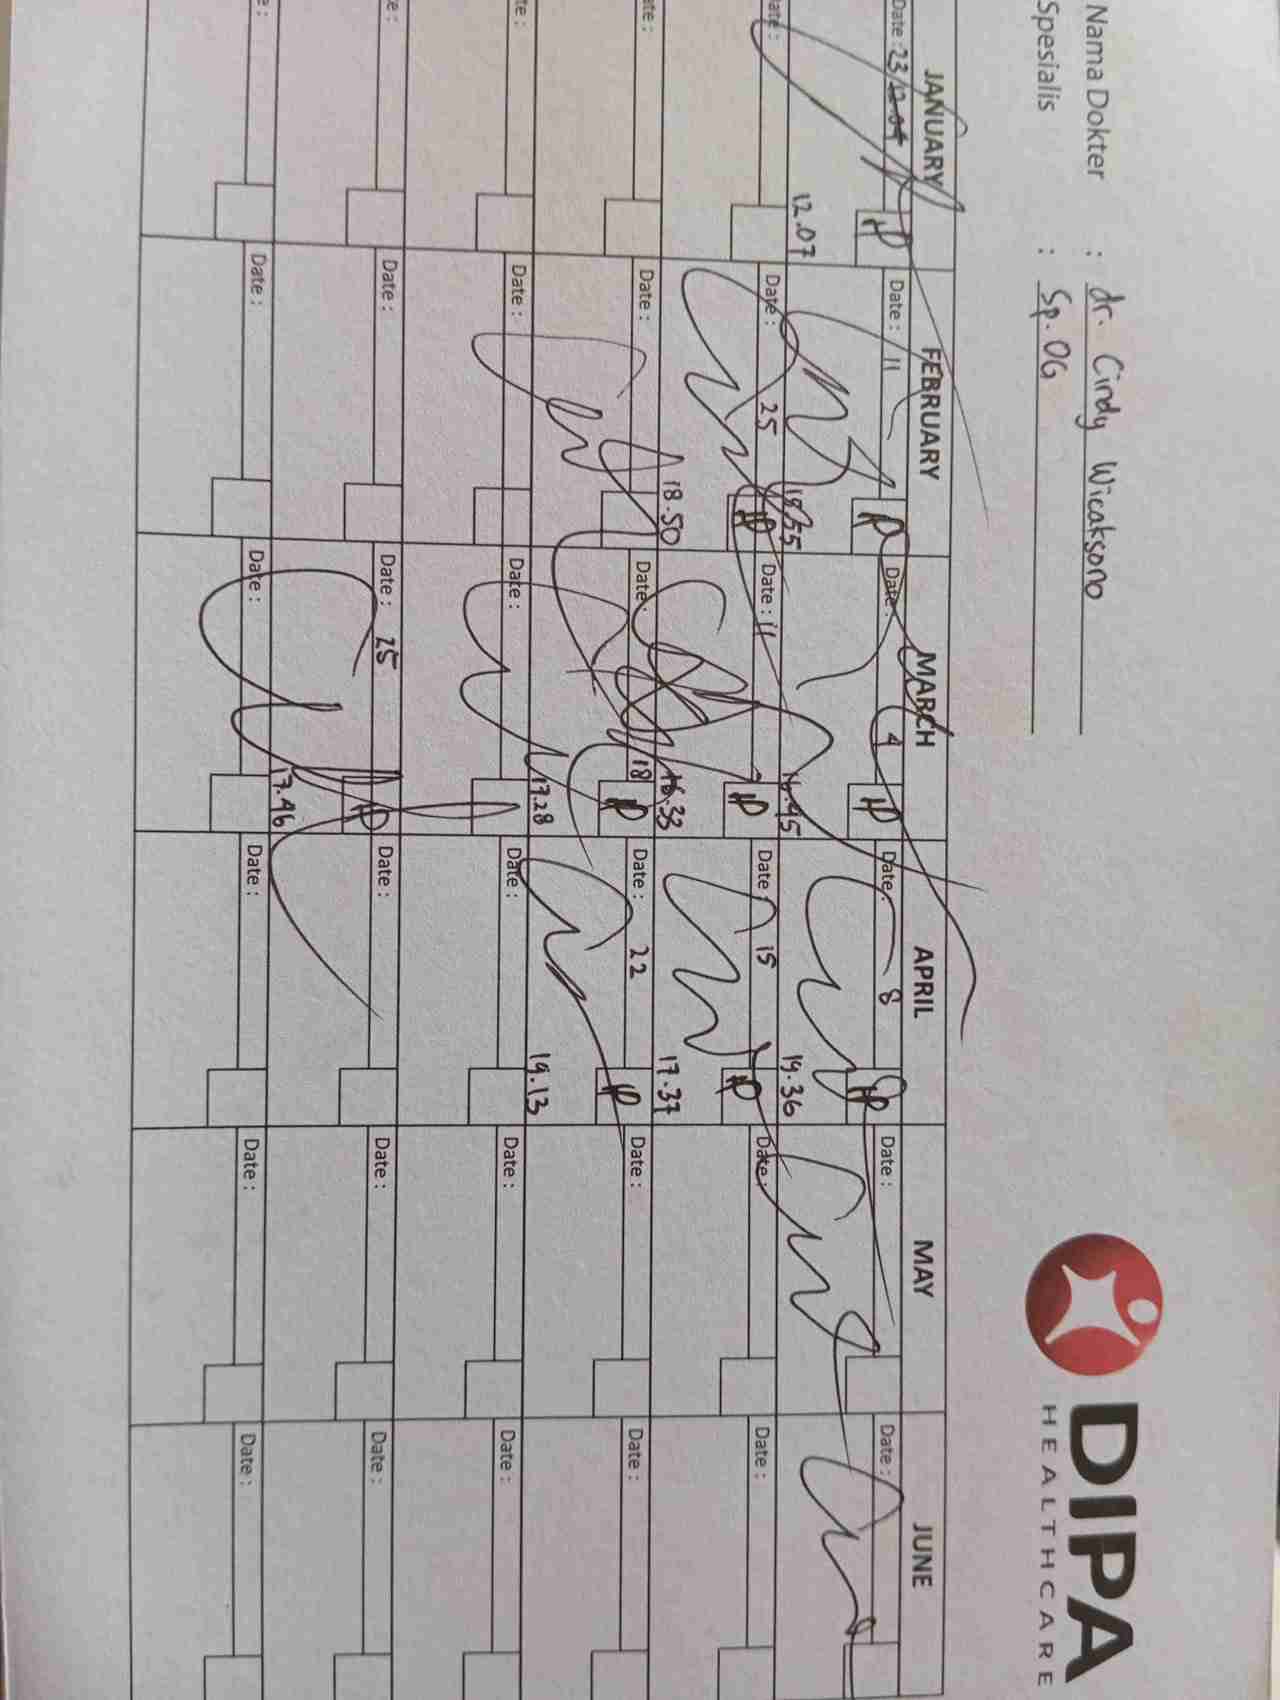 Nama Dokter : dr. Cindy Wicaksono
Spesialis : Sp.OG
DIPA
HEALTHCARE
JANUARY FEBRUARY MARCH APRIL MAY JUNE
Date : 23 Date : 11 Date : 4 Date : 8 Date : Date :
12.07 19.36
Date : Date : 25 Date : 11 Date : 15 Date : Date :
18.50 16.33 17.37
ate : Date : Date : 18 Date : 22 Date : Date :
17.28 19.13
te : Date : Date : Date : Date : Date :
e : Date : Date : 25 Date : Date : Date :
17.46
e : Date : Date : Date : Date : Date :